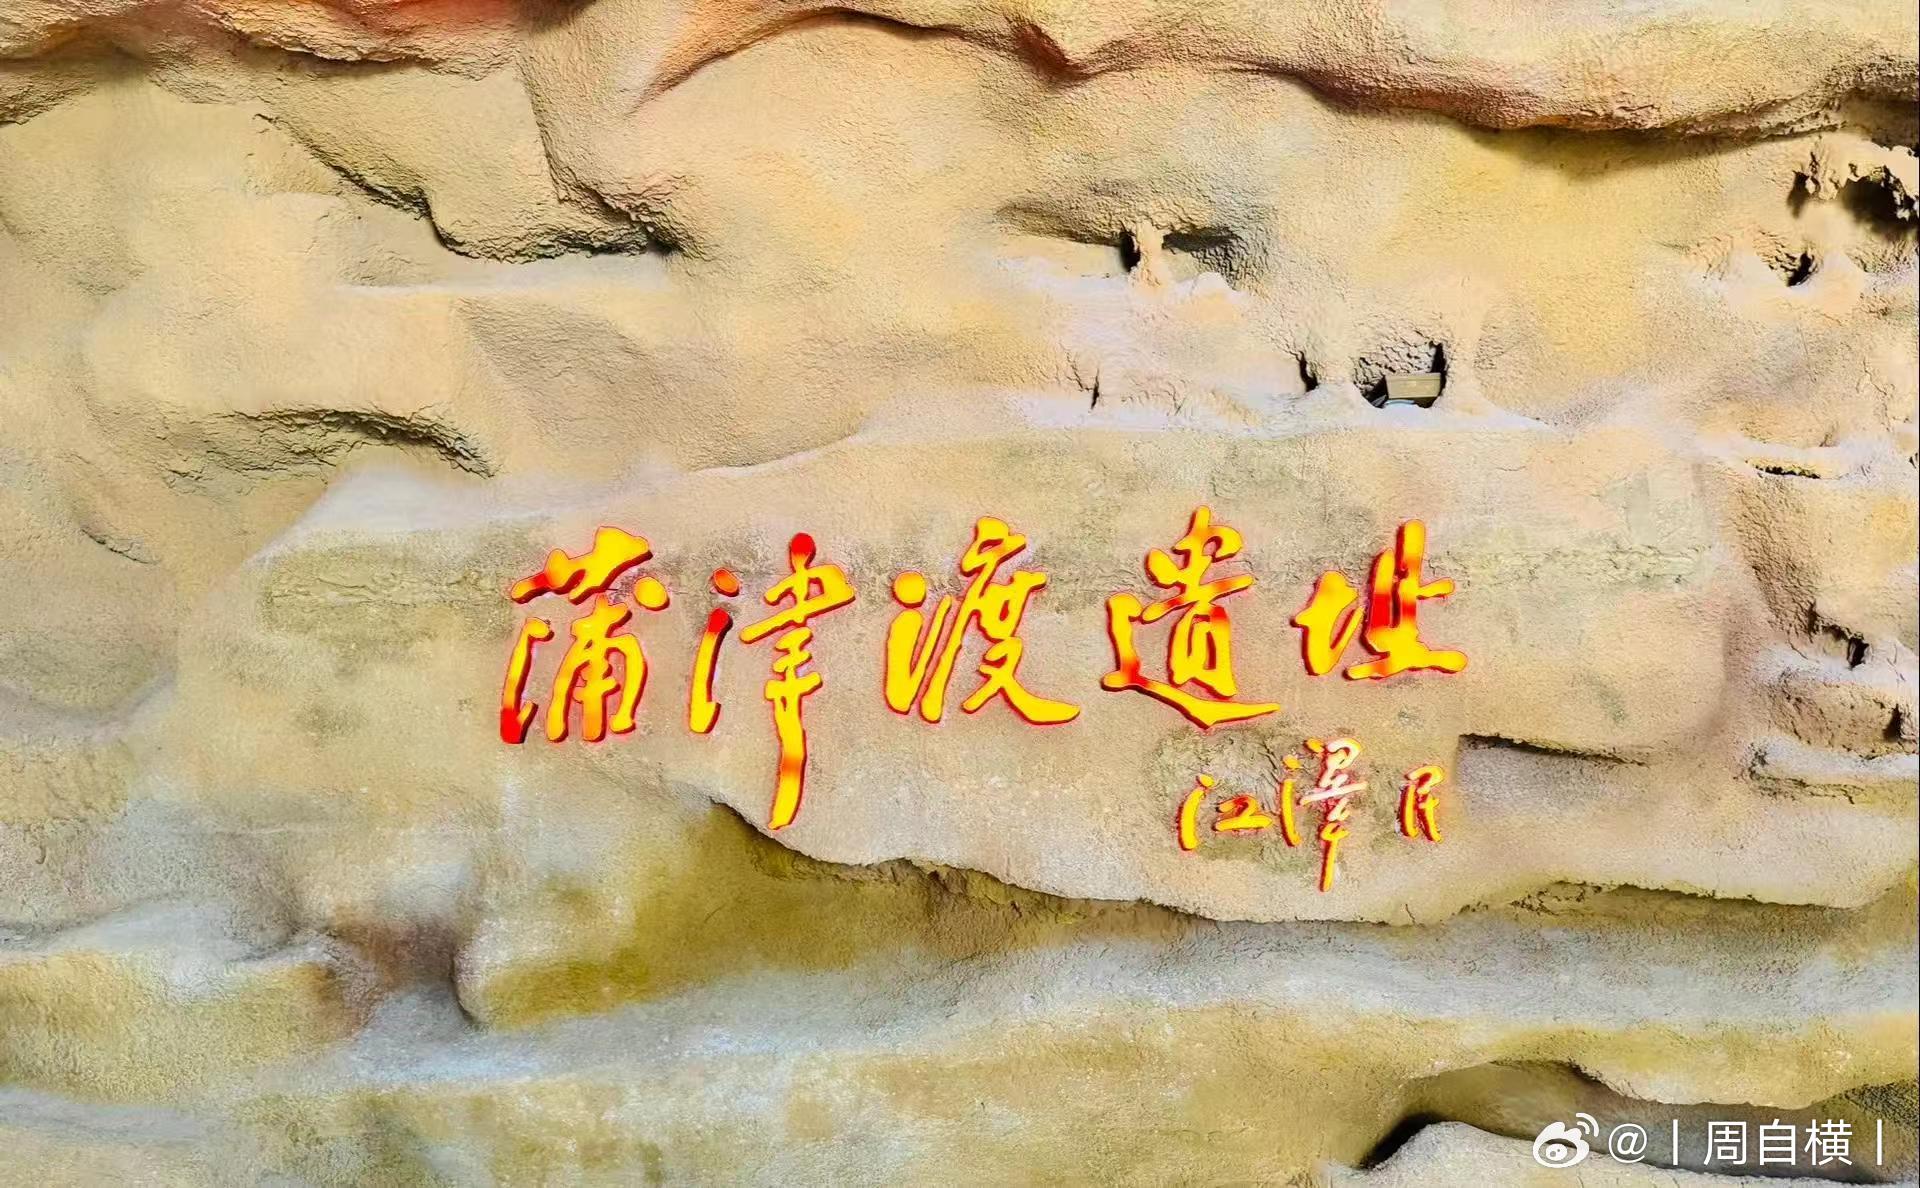 蒲津渡遗址
江泽民
@丨周自横丨